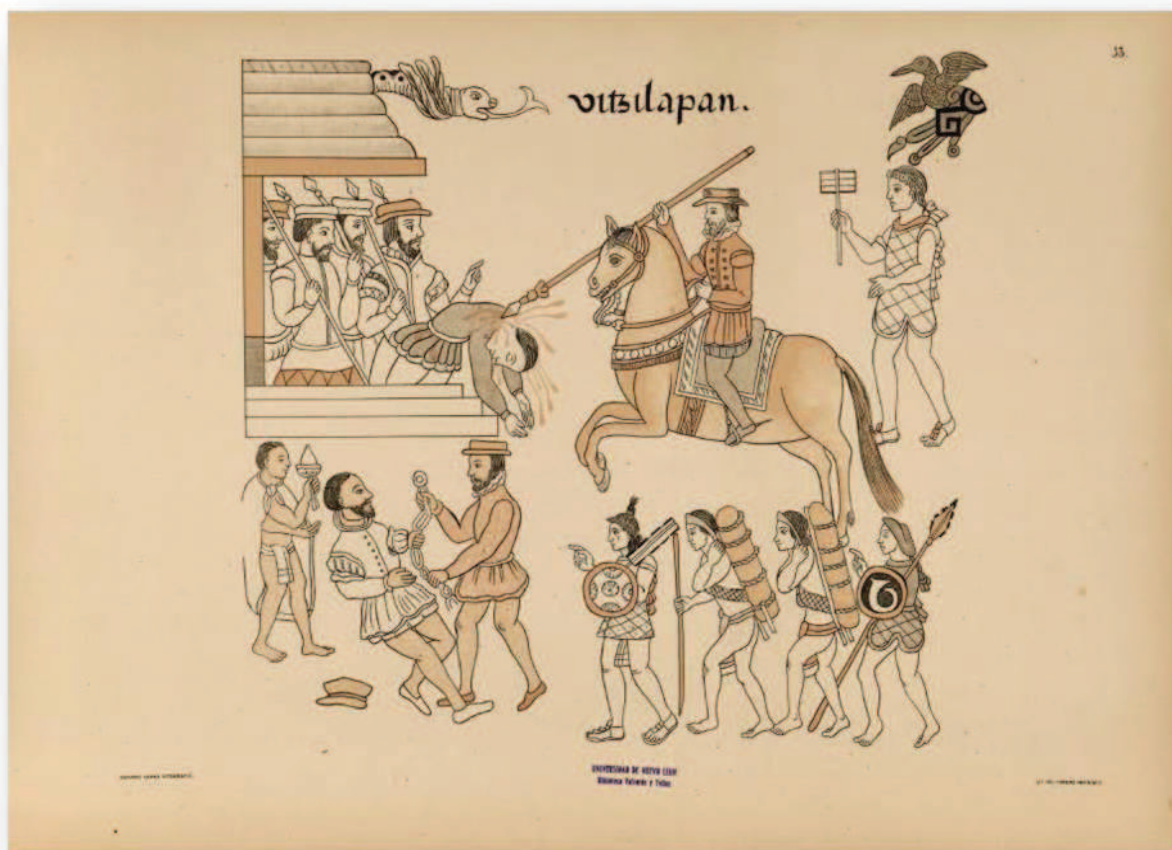 33.
vitzilapan.
UNIVERSIDAD DE NUEVO LEON
Biblioteca Valverde y Tellez